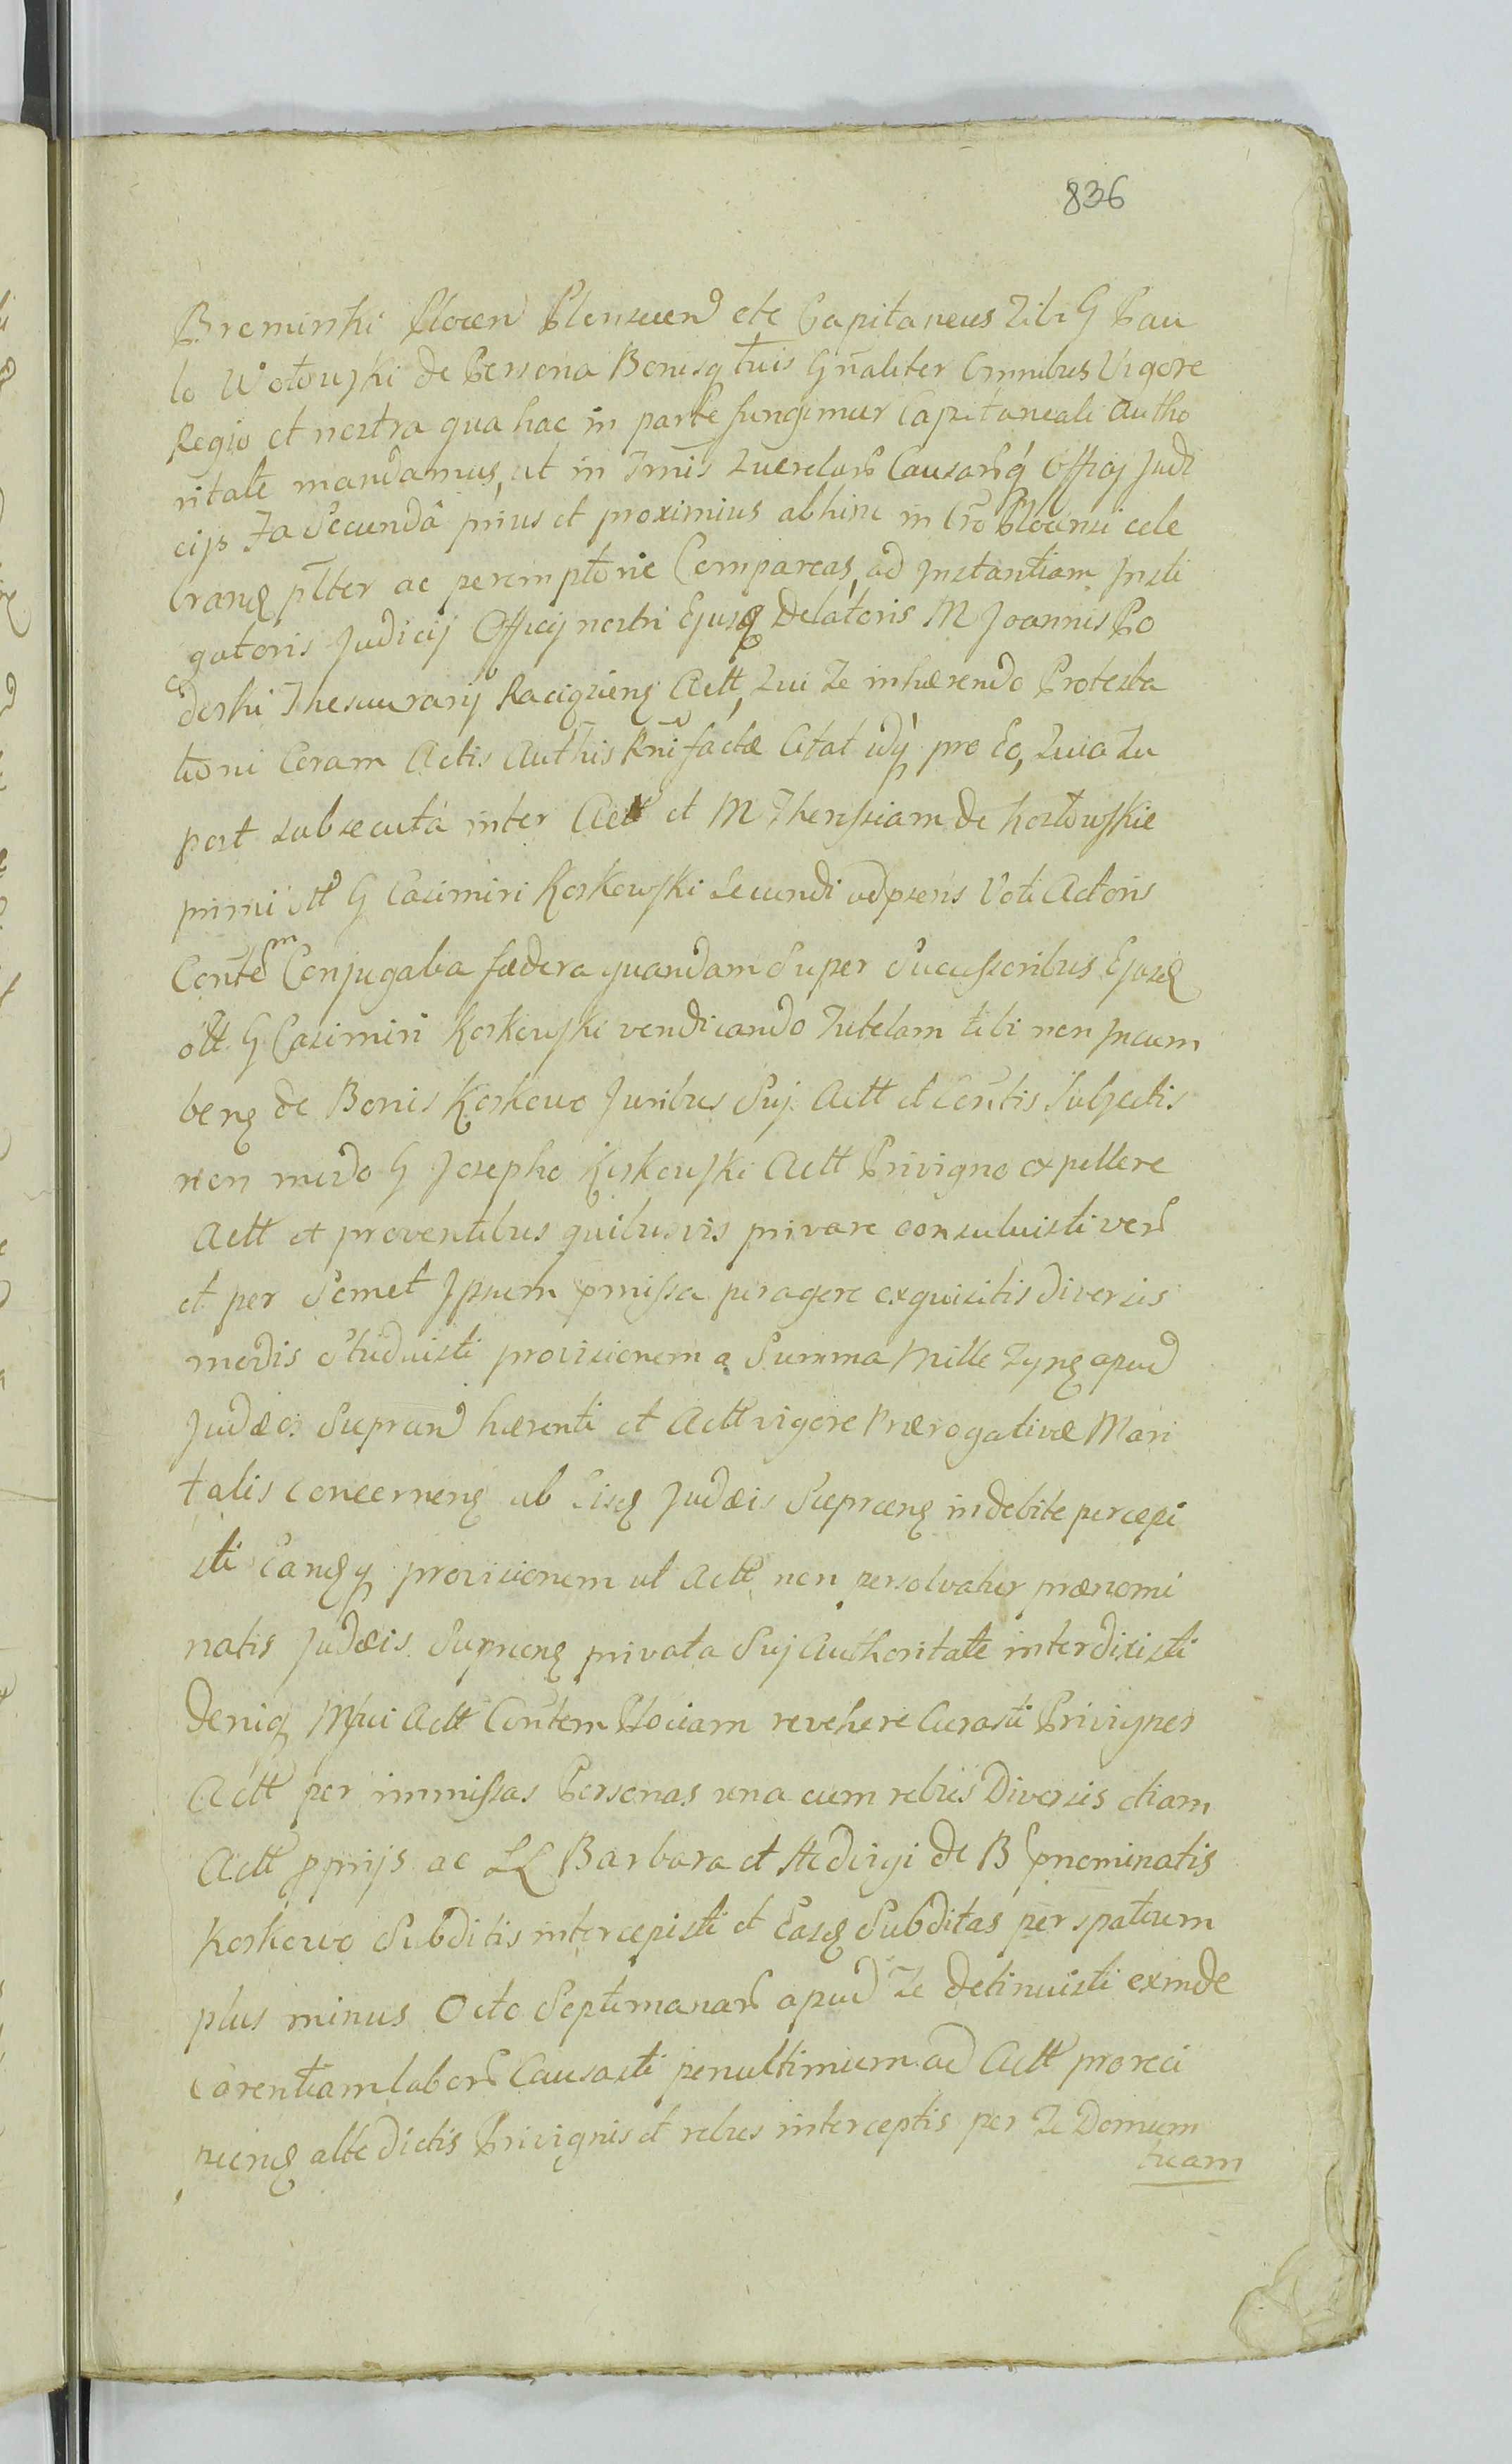 836
Bromirski Plocen Plonscen etc Capitaneus Tibi G Pau
lo Wołowski de Persona Bonisq tuis Gnāliter Omnibus Vigore
Regio et nostra qua hac in parte fungimur Capitaneali Autho
ritate mandamus, ut in Tmīs Querelarū Causarūq Officij Judi
cijs Fa Secundâ prius et proximius abhinc in Cro Plocensi cele
brang plter ac peremptorie Compareas, ad Jnstantiam Jnsti
gatoris Judicij Officij nostri Ejusq Delatoris M Joannis Po
doski Thesaurarij Raciązieng Actt, Qui Te inhærendo Protesta
tioni Coram Actis Authis factæ Citat idq pro Eo, Quia Tu
post subsecuta inter Actt et M Theressiam de Kozłowskie
primi ott G Casimiri Koskowski Secundi adpræns Voti Actoris
Contem Conjugalia fædera quandam Super Sucessoribus Ejusd
ott G Casimiri Koskowski vendicando Tutelam tibi non Jncum
beng de Bonis Koskowo Juribus Suj Actt et Contis Subjectis
non modo G Josepho Koskowski Actt Privigno expellere
Actt et proventibus quibusvis privare consuluisti verū
et per Semet Jpsum pmissa peragere exquisitis diversis
modis Studuisti provisionem a Summa Mille Tyng apud
Judæos Sieprcen hærenti et Actt vigore Prærogativæ Mari
talis concerneng ab Eisd Judæis Sieprceng indebite percepi
sti Eandq provisionem ut Actt non persolvatur prænomi
natis Judæis Sieprceng privata Suj Authoritate interdixisti
deniq Mfici Actt Contem Plociam revehere Curasti Privignos
Actt per immissas Personas una cum rebus Diversis etiam
Actt pprijs ac LL Barbara et Hedvigi de B pnominatis
Koskowo Subditis intercepisti et Easd Subditas per spatium
plus minus Octo Septimanarū apud Te detinuisti exinde
carentiam laborū Causasti penultimum ad Actt proreci
pieng alte dictis Privignis et rebus interceptis per Te Domum
tuam